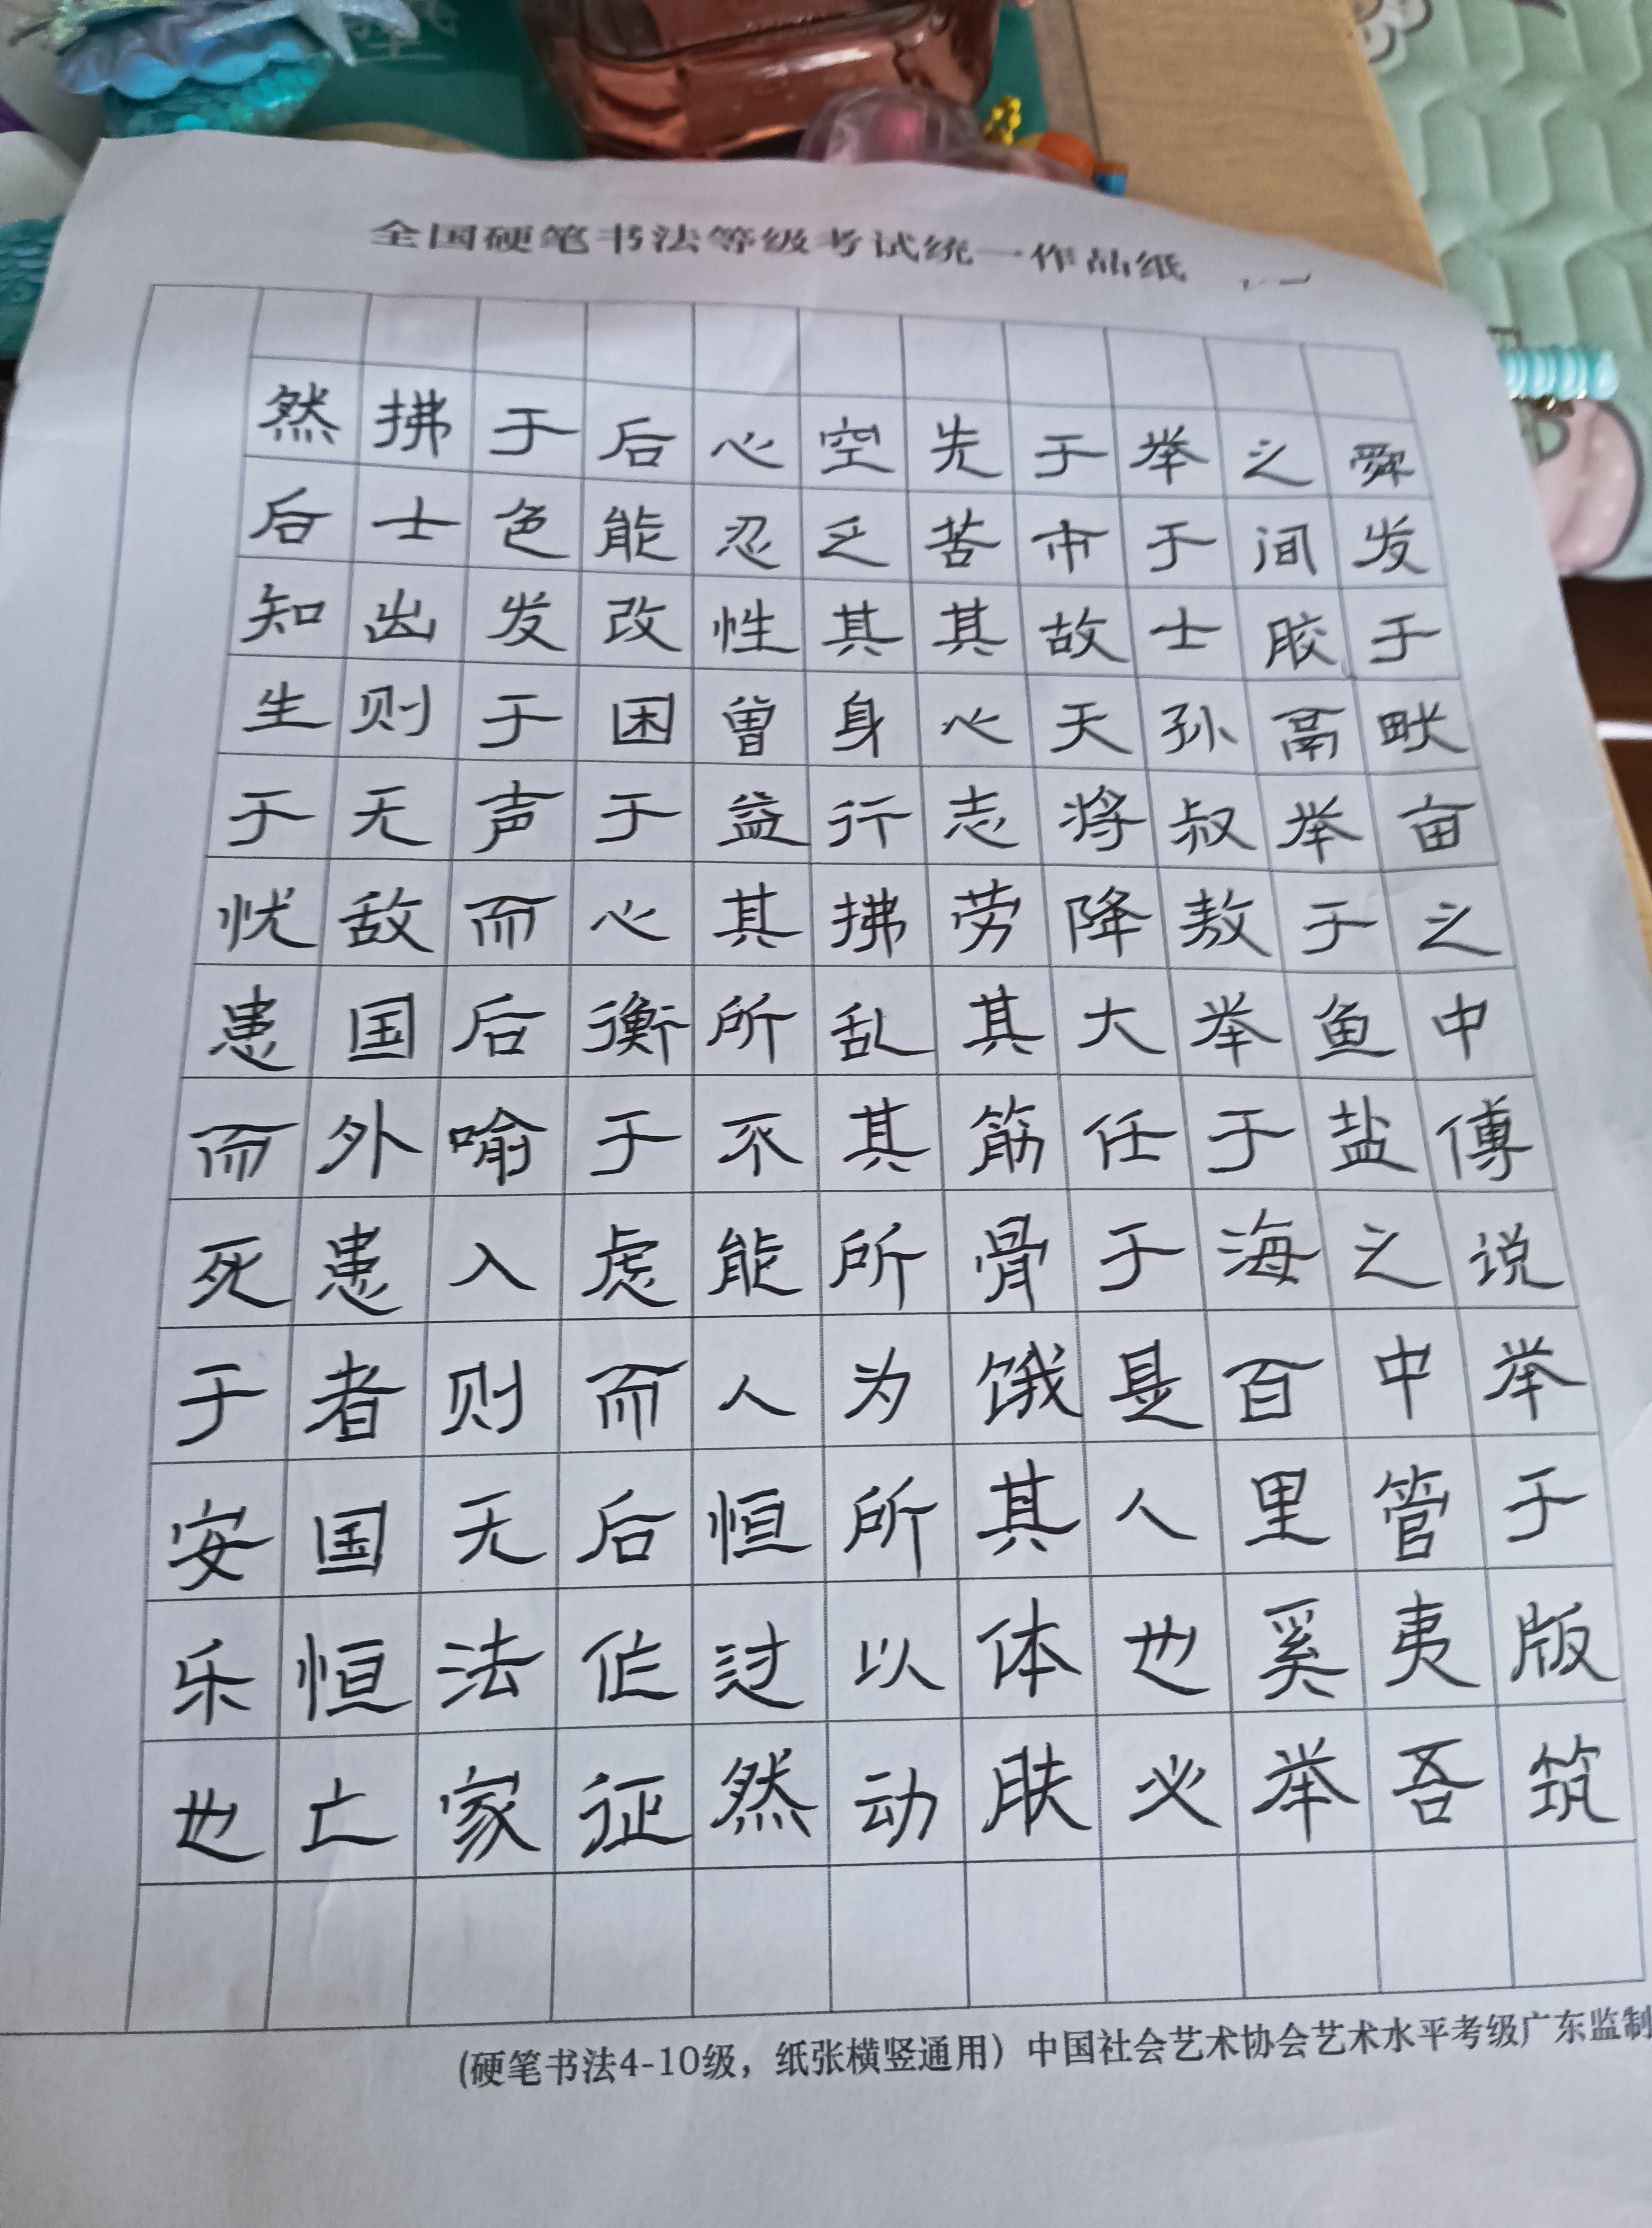 全国硬笔书法等级考试统一作品纸
舜发于畎亩之中傅说举于版筑
之间胶鬲举于鱼盐之中管夷吾
举于士孙叔敖举于海百里奚举
于市故天将降大任于是人也必
先苦其心志劳其筋骨饿其体肤
空乏其身行拂乱其所为所以动
心忍性曾益其所不能人恒过然
后能改困于心衡于虑而后作征
于色发于声而后喻入则无法家
拂士出则无敌国外患者国恒亡
然后知生于忧患而死于安乐也
(硬笔书法4-10级，纸张横竖通用）中国社会艺术协会艺术水平考级广东监制